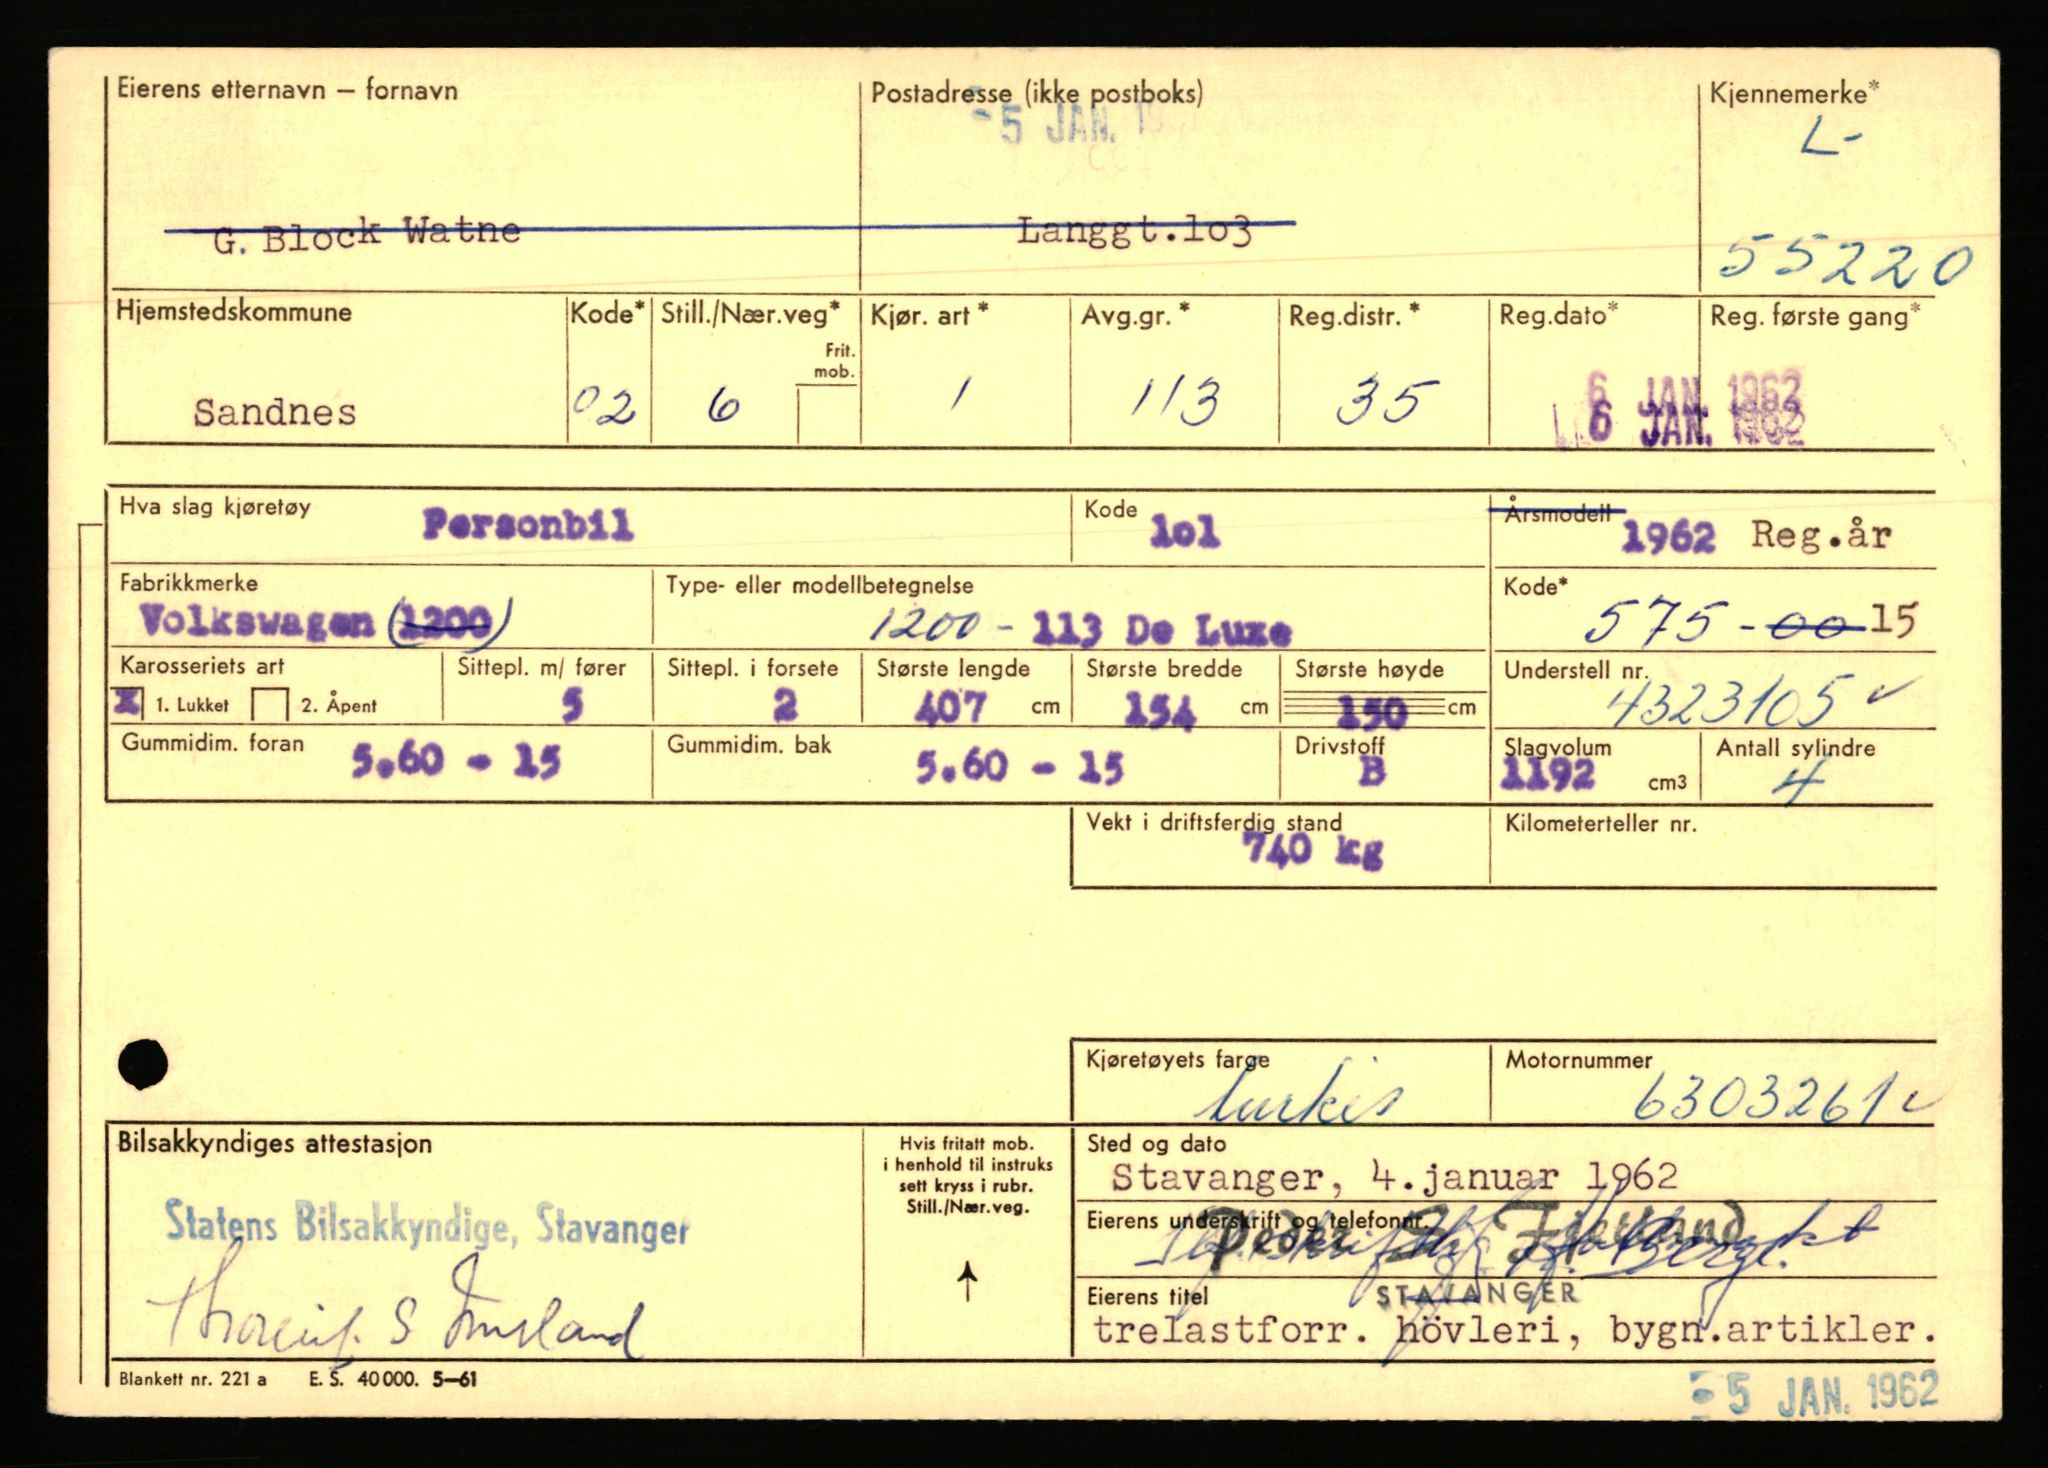 Eierens etternavn – fornavn
Postadresse (ikke postboks)
Kjennemerke*
5 JAN.
L-
G. Block Watne
Langgt.lo3
55220
Hjemstedskommune
Kode*
Still./Nær.veg*
Frit. mob.
Kjør. art *
Avg.gr. *
Reg.distr. *
Reg.dato*
Reg. første gang*
Sandnes
02
6
1
113
35
6 JAN. 1962
6 JAN. 1962
Hva slag kjøretøy
Personbil
Kode
lol
Årsmodell
1962 Reg.år
Fabrikkmerke
Volkswagen (1200)
Type- eller modellbetegnelse
1200 - 113 De Luxe
Kode*
575 - 00 15
Karosseriets art
X 1. Lukket 2. Åpent
Sittepl. m/ fører
5
Sittepl. i forsete
2
Største lengde
407 cm
Største bredde
154 cm
Største høyde
150 cm
Understell nr.
4323105
Gummidim. foran
5.60 - 15
Gummidim. bak
5.60 - 15
Drivstoff
B
Slagvolum
1192 cm3
Antall sylindre
4
Vekt i driftsferdig stand
740 kg
Kilometerteller nr.
Kjøretøyets farge
turkis
Motornummer
6303261
Bilsakkyndiges attestasjon
Statens Bilsakkyndige, Stavanger
Hvis fritatt mob.
i henhold til instruks
sett kryss i rubr.
Still./Nær.veg.
Sted og dato
Stavanger, 4.januar 1962
Eierens underskrift og telefonnr.
Peder
Eierens titel
STAVANGER
trelastforr. hövleri, bygn.artikler.
Blankett nr. 221 a E. S. 40 000. 5–61
5 JAN. 1962